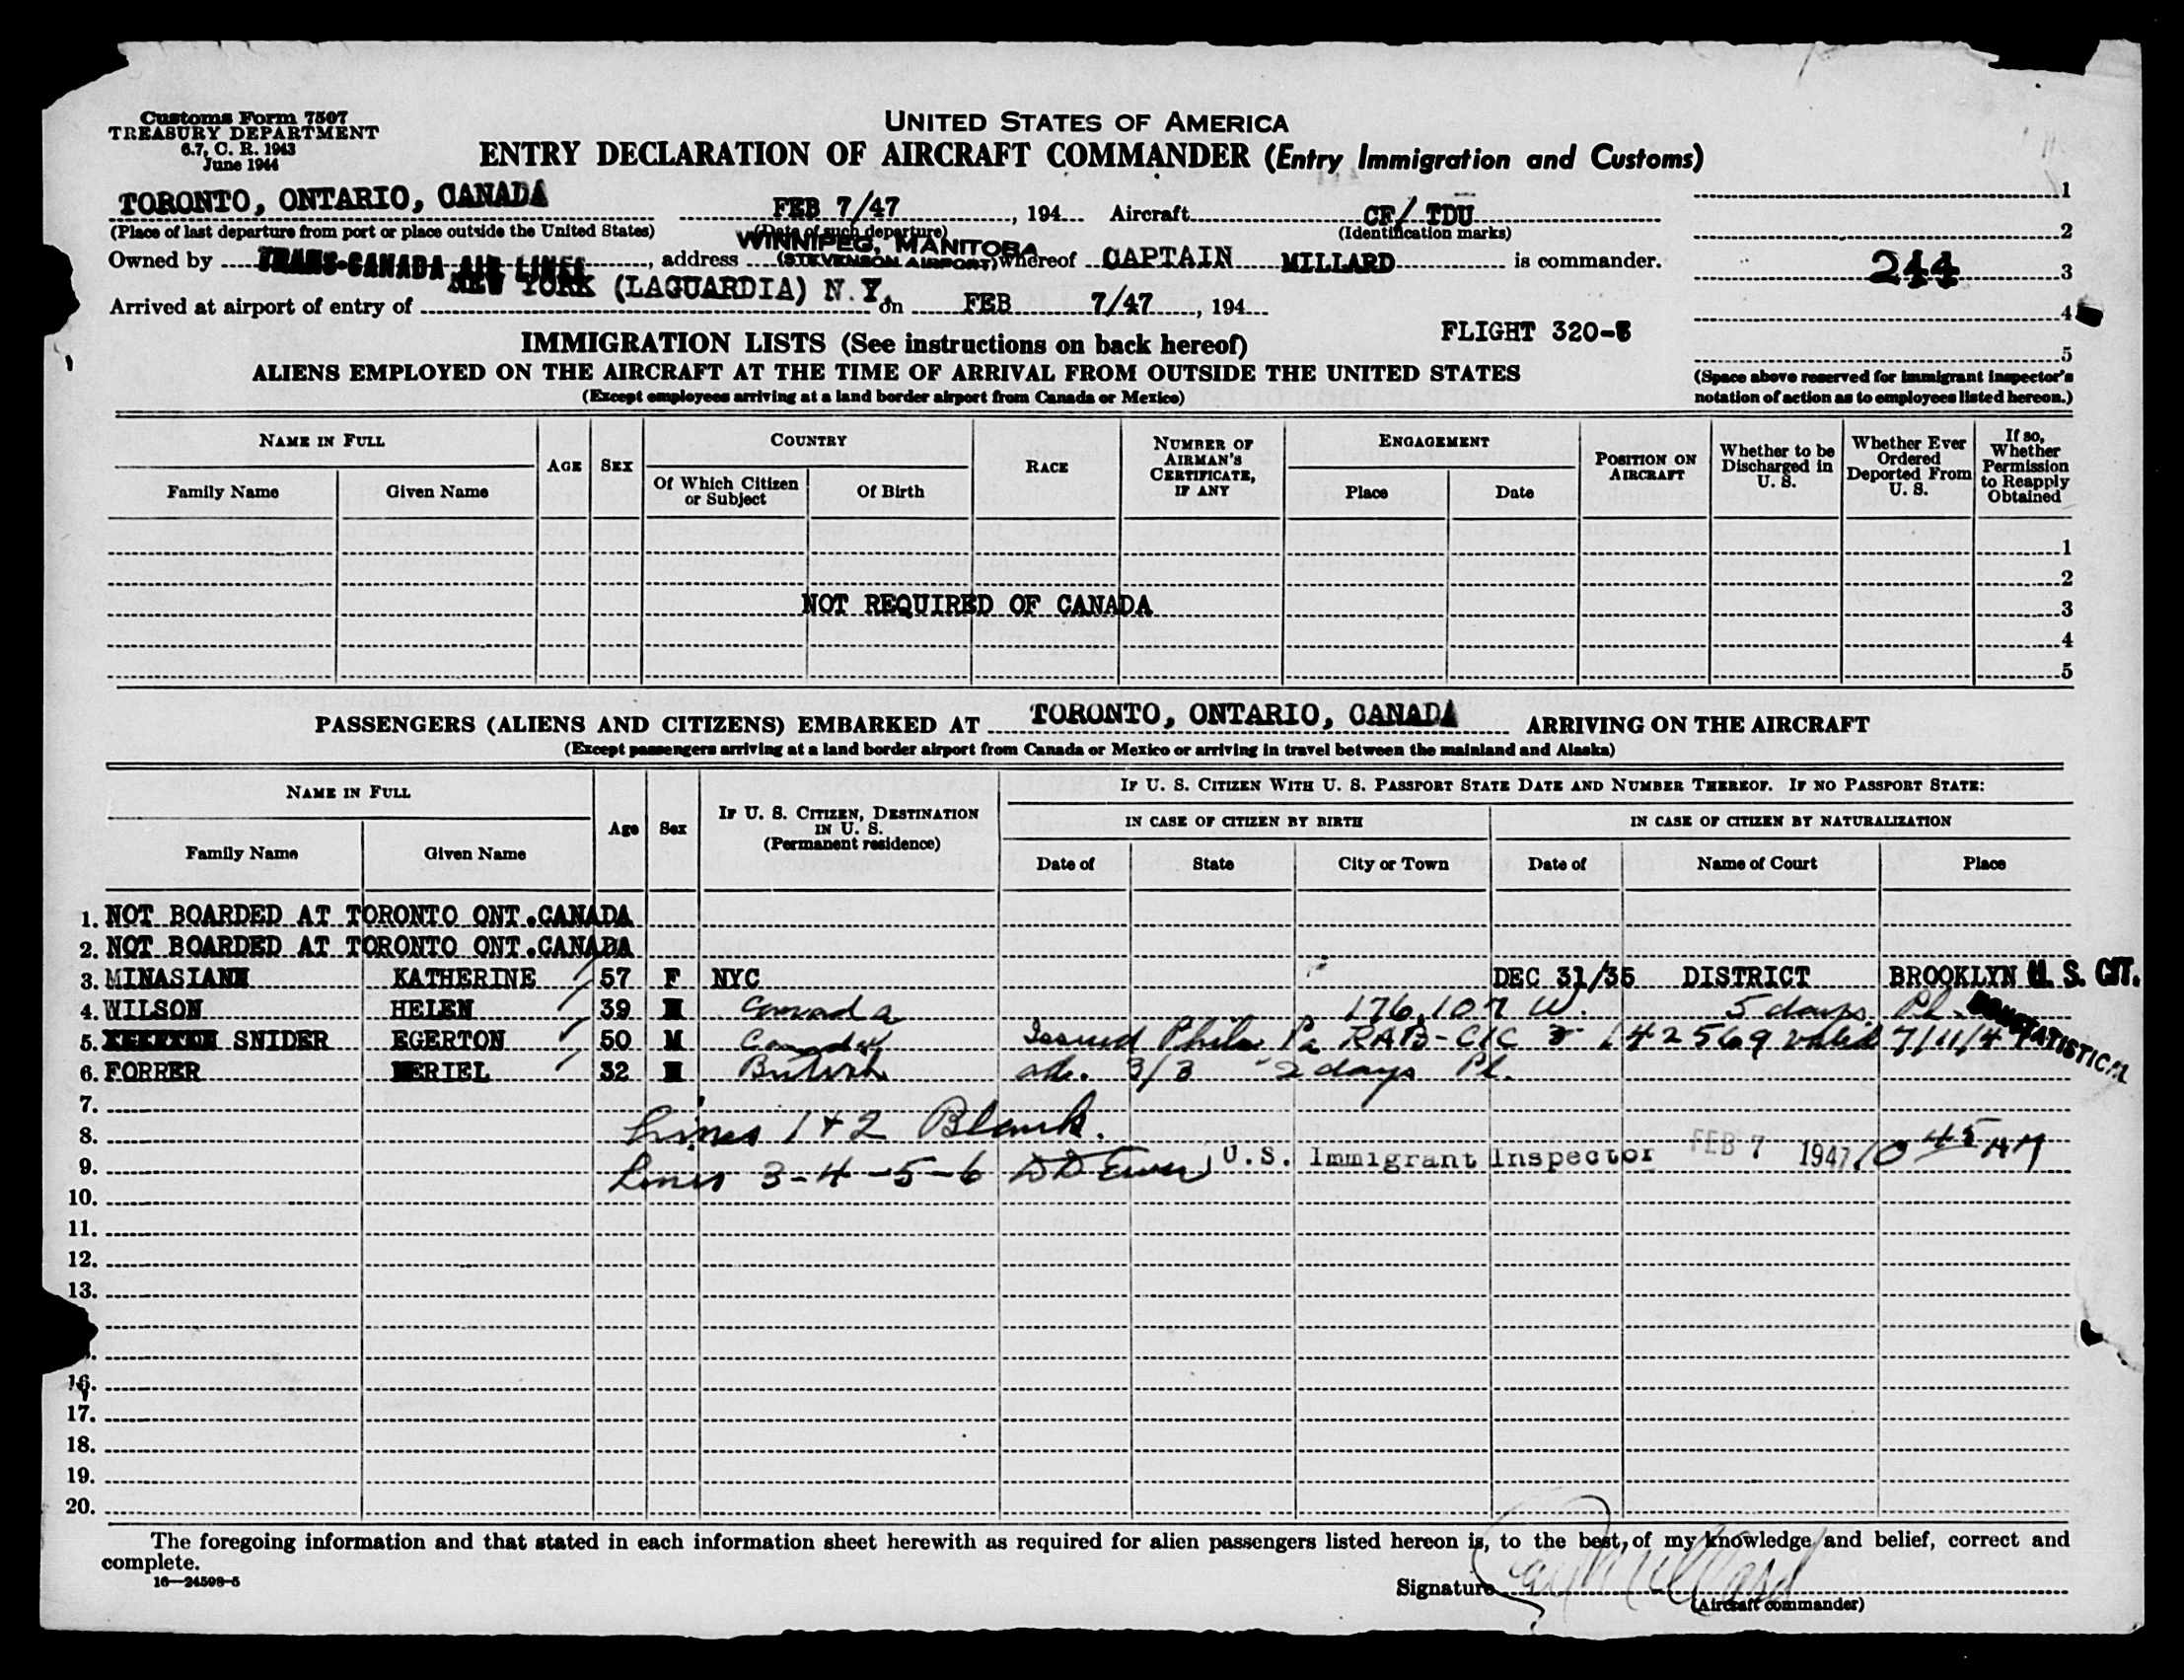 Customs Form 7507
TREASURY DEPARTMENT
6.7, C. R. 1943
June 1944
UNITED STATES OF AMERICA
ENTRY DECLARATION OF AIRCRAFT COMMANDER (Entry Immigration and Customs)
TORONTO, ONTARIO, CANADA FEB 7/47, 194 Aircraft CF/ TDU 1
(Place of last departure from port or place outside the United States) (Date of such departure) (Identification marks) 2
Owned by TRANS-CANADA AIR LINES, address WINNIPEG, MANITOBA (STEVENSON AIRPORT) whereof CAPTAIN MILLARD is commander. 244 3
Arrived at airport of entry of NEW YORK (LAGUARDIA) N.Y. on FEB 7/47, 194 4
FLIGHT 320- 5
IMMIGRATION LISTS (See instructions on back hereof)
ALIENS EMPLOYED ON THE AIRCRAFT AT THE TIME OF ARRIVAL FROM OUTSIDE THE UNITED STATES
(Except employees arriving at a land border airport from Canada or Mexico)
(Space above reserved for immigrant inspector's
notation of action as to employees listed hereon.)
NAME IN FULL AGE SEX COUNTRY RACE NUMBER OF AIRMAN'S CERTIFICATE, IF ANY ENGAGEMENT POSITION ON AIRCRAFT Whether to be Discharged in U. S. Whether Ever Ordered Deported From U. S. If so, Whether Permission to Reapply Obtained
Family Name Given Name Of Which Citizen or Subject Of Birth Place Date
1
2
NOT REQUIRED OF CANADA 3
4
5
PASSENGERS (ALIENS AND CITIZENS) EMBARKED AT TORONTO, ONTARIO, CANADA ARRIVING ON THE AIRCRAFT
(Except passengers arriving at a land border airport from Canada or Mexico or arriving in travel between the mainland and Alaska)
NAME IN FULL Age Sex IF U. S. CITIZEN, DESTINATION IN U. S. (Permanent residence) IF U. S. CITIZEN WITH U. S. PASSPORT STATE DATE AND NUMBER THEREOF. IF NO PASSPORT STATE:
IN CASE OF CITIZEN BY BIRTH IN CASE OF CITIZEN BY NATURALIZATION
Family Name Given Name Date of State City or Town Date of Name of Court Place
1. NOT BOARDED AT TORONTO ONT.CANADA
2. NOT BOARDED AT TORONTO ONT.CANADA
3. MINASIAN KATHERINE 57 F NYC DEC 31/35 DISTRICT BROOKLYN U. S. CIT.
4. WILSON HELEN 39 Canada 176,107 W. 5 days Pl.
5. SNIDER EGERTON 50 M Canada Issued Phila Pa RAB-CIC 142569 valid 7/11/4
NONSTATISTICAL
6. FORRER MERIEL 32 British 3/3 2 days Pl.
7.
8. Lines 1 + 2 Blank.
9. Lines 3-4-5-6 U.S. Immigrant Inspector FEB 7 1947 10 45 AM
10.
11.
12.
13.
16.
17.
18.
19.
20.
The foregoing information and that stated in each information sheet herewith as required for alien passengers listed hereon is, to the best of my knowledge and belief, correct and
complete.
16—24598-5
Signature
(Aircraft commander)